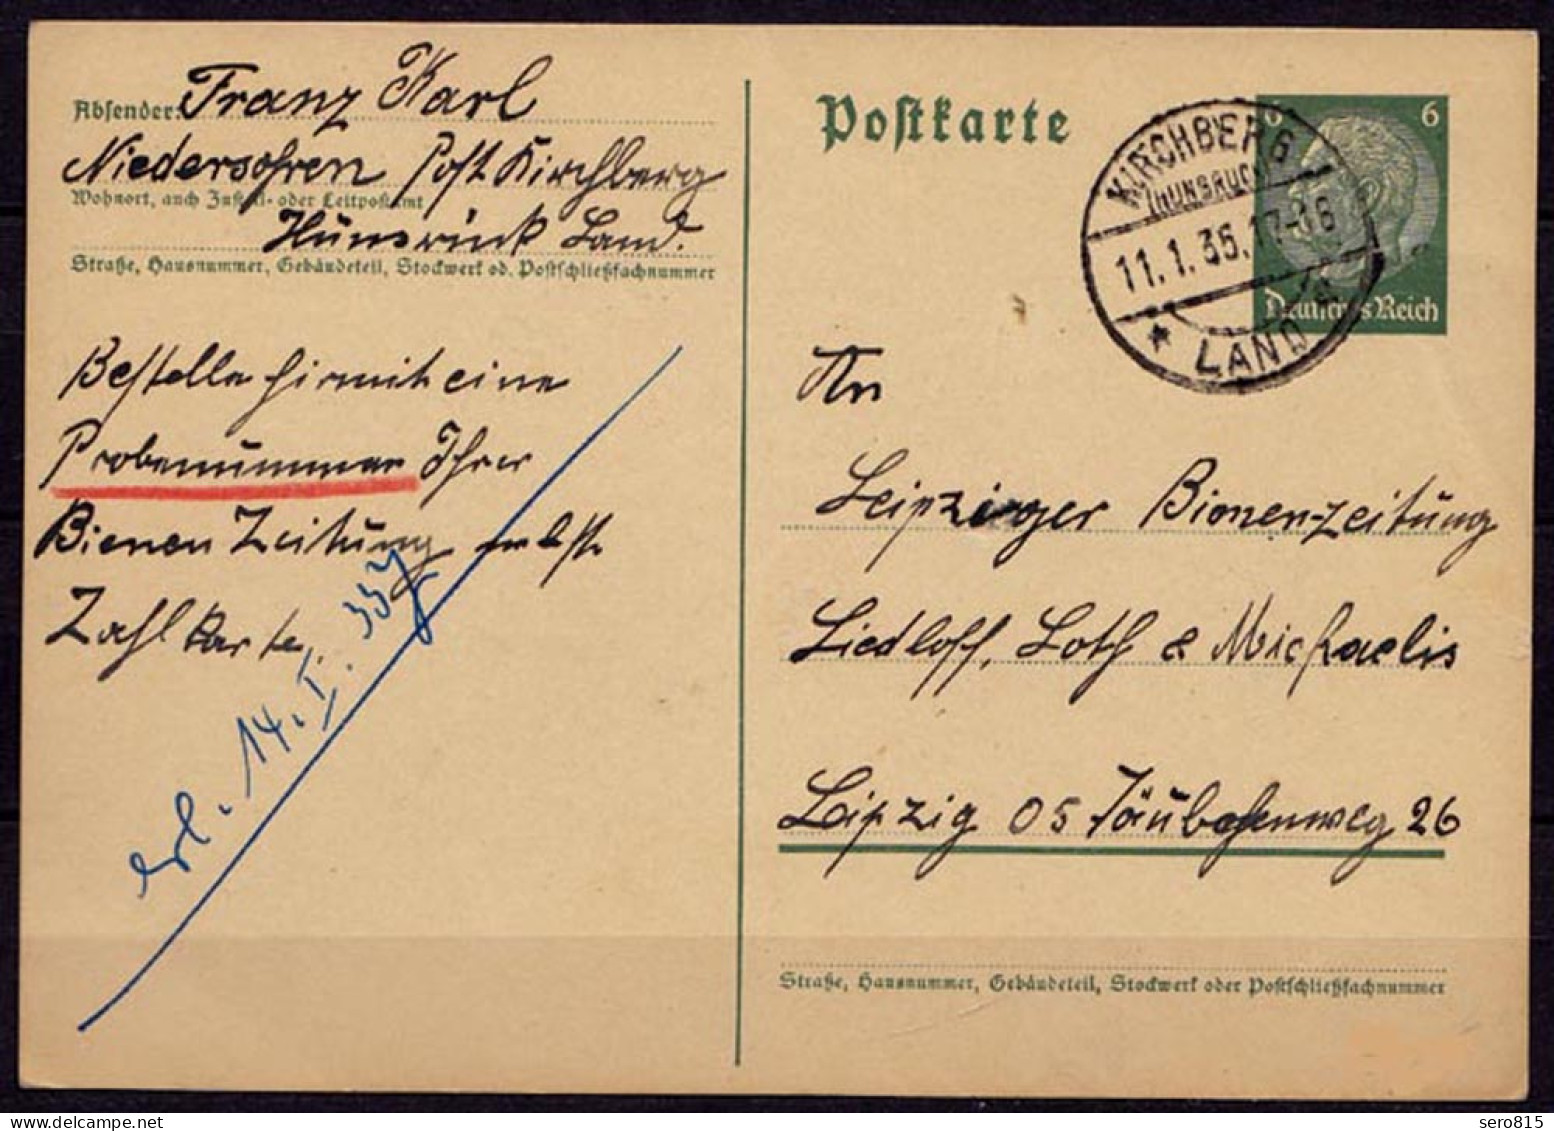 Absender: Franz Karl
Niedersohren Post Kirchberg
Wohnort, auch Zustell- oder Leitpostamt
Hunsrück Land.
Straße, Hausnummer, Gebäudeteil, Stockwerk od. Postschließfachnummer
Bestelle hirmit eine
Probenummer Ihrer
Bienen Zeitung nebst
Zahlkarte,
erl. 14. I.
Postkarte
6 6
Deutsches Reich
KIRCHBERG
(HUNSRÜCK)
11.1.35.17-18
* LAND
An
Leipziger Bienen-zeitung
Liedloff, Loth & Michaelis
Leipzig 05 Täubchenweg 26
Straße, Hausnummer, Gebäudeteil, Stockwerk oder Postschließfachnummer
sero815